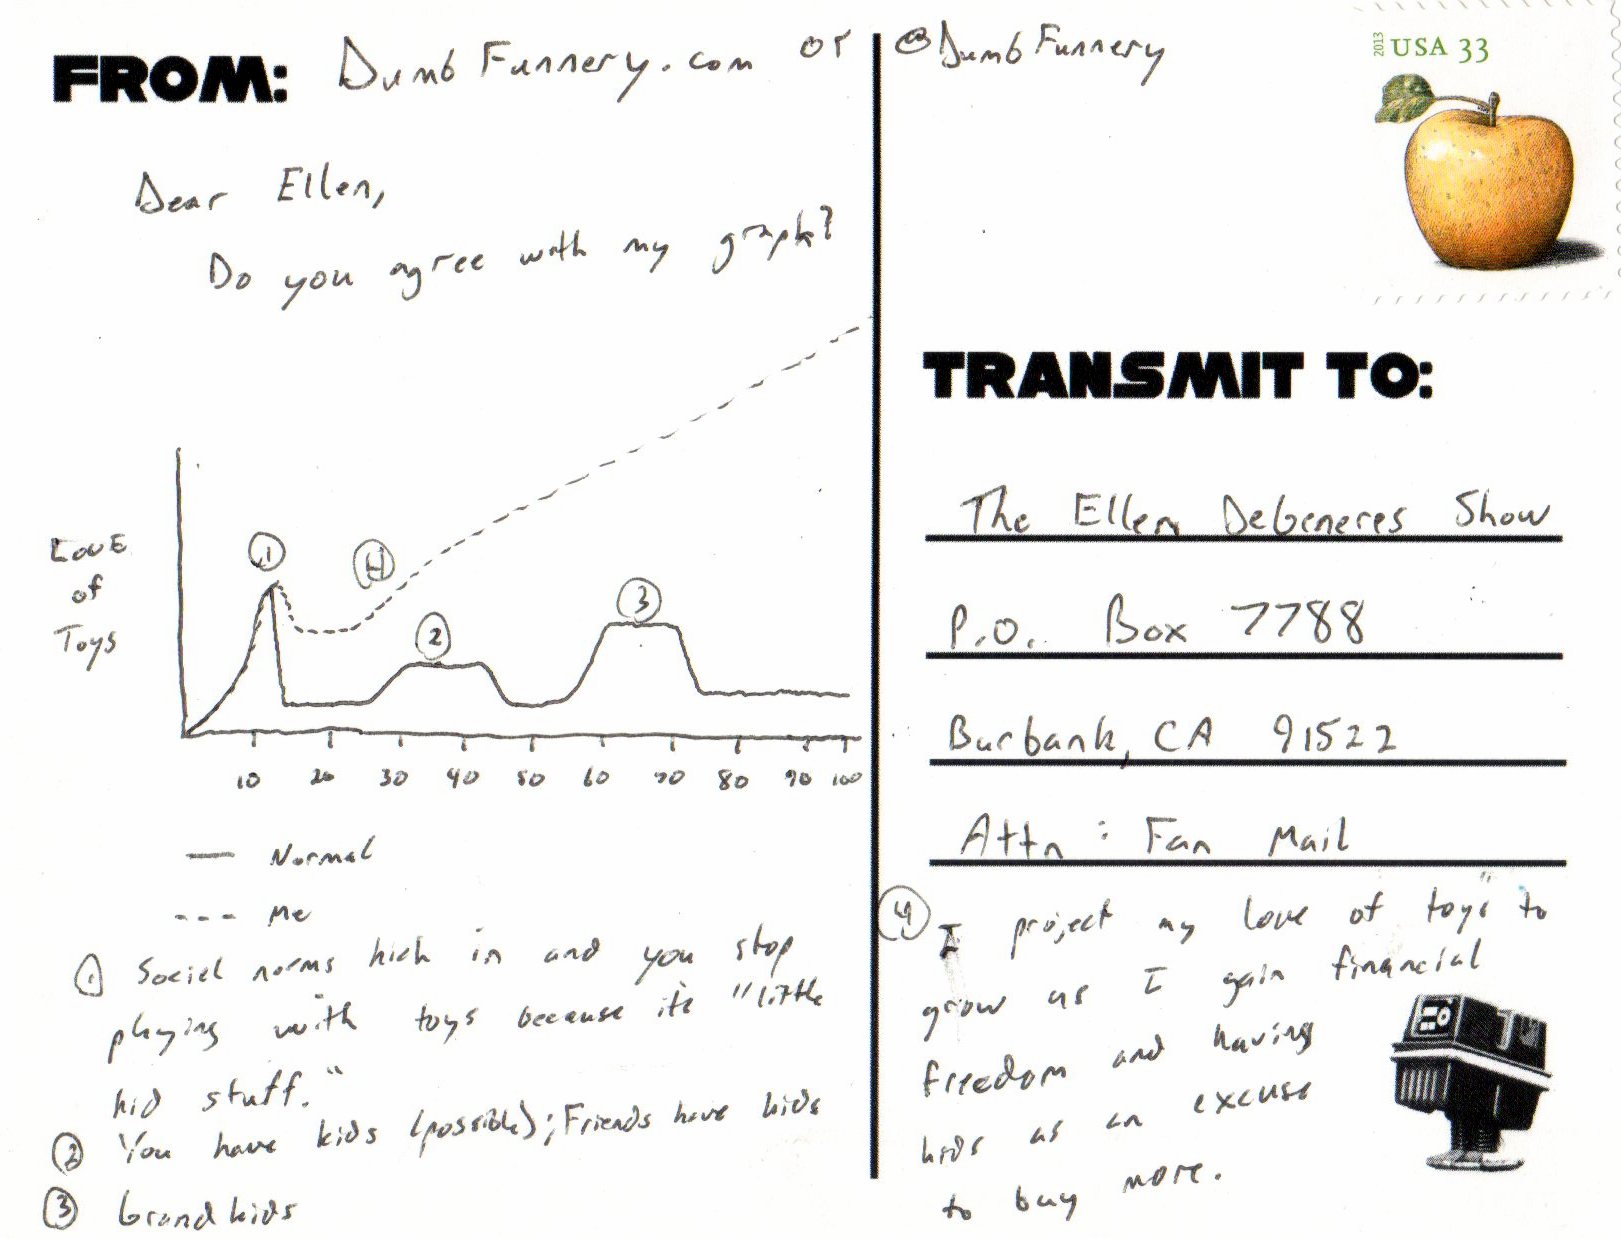 FROM: DumbFunnery.com or @DumbFunnery
Dear Ellen,
Do you agree with my graph?
Love
of
Toys
1
4
2
3
10 20 30 40 50 60 70 80 90 100
— Normal
--- Me
1 Social norms kick in and you stop
playing with toys because its "little
kid stuff."
2 You have kids (possible); Friends have kids
3 Grandkids
2013 USA 33
TRANSMIT TO:
The Ellen DeGeneres Show
P.O. Box 7788
Burbank, CA 91522
Attn: Fan Mail
4 I project my love of "toys" to
grow as I gain financial
freedom and having
kids as an excuse
to buy more.